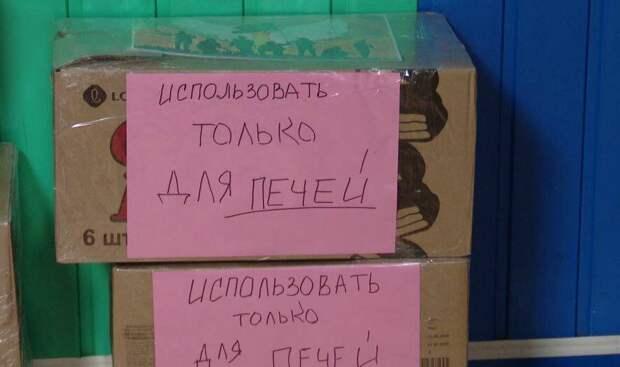 LO
ИСПОЛЬЗОВАТЬ
ТОЛЬКО
ДЛЯ ПЕЧЕЙ
6 шт
ИСПОЛЬЗОВАТЬ
ТОЛЬКО
ДЛЯ ПЕЧЕЙ